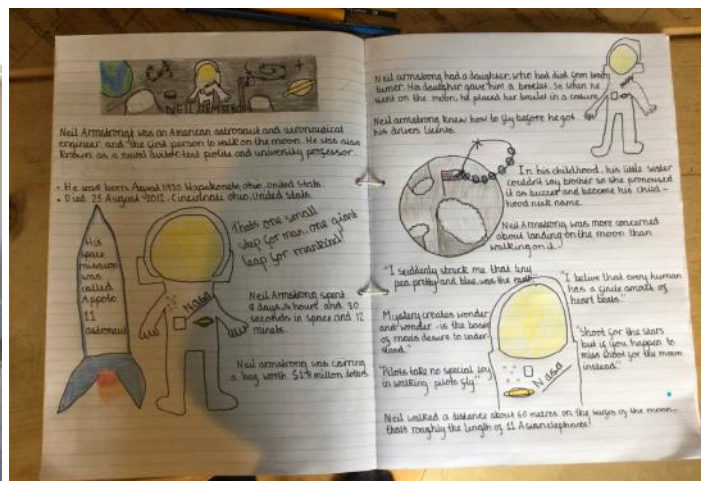 NEIL ARMSTRONG
Neil Armstrongt was an American astronaut and aeronautical
engineer and the first person to walk on the moon. He was also
known as a naval aviator, test and university professor.
• He was born August 1930 Wapakoneta, ohio, United Stats.
• Died 25 August 2012, Cincinnati ohio, United Stats.
His
space
mission
was
called
Appolo
11
astronaut
Thats one small
step for man, one giant
leap for mankind!
Nasa
Neil Armstrong spent
8 days, hours and 30
seconds in space and 12
Neil armstrong was
a bag worth $1.8 million dollars.
Neil armstrong had a daughter, who had died from brain
tumer. His daughter gave him a So when he
went on the moon, he placed her in a
Neil armstrong knew how to fly before he got
his drivers
In his childhood, his little sister
couldn't say brother so she pronouned
it as buzzer and become his child-
hood nick name.
Neil Armstrong was more concerned
about landing on the moon than
walking on it.
"I Suddenly struck me that tiny
pea, pretty and blue, was the earth."
"I belive that every human
has a finite amount of
heart beats."
Mystery creates wonder
and wonder is the basis
of mans desire to under-
stand."
"Shoot for the stars
but if you happen to
miss shoot for the moon
instead."
"Pilots take no special joy
in walking, pilots fly."
Nasa
Neil walked a distance about 60 metres on the of the moon -
thats roughly the length of 11 Asian elephants!